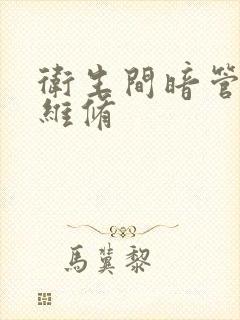 衛生間暗管
維脩
馬蓂黎